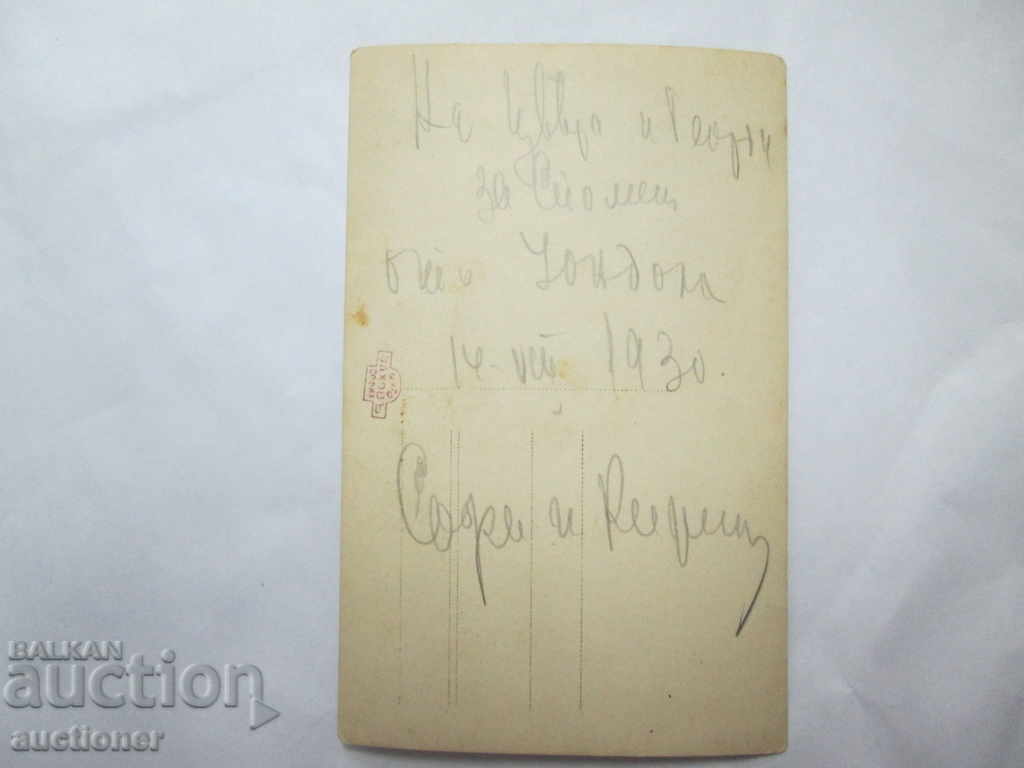 На и Георги
за Спомен
отъ Лондонъ
14-VIII 1930.
Софи и
BALKAN
auction
auctioner